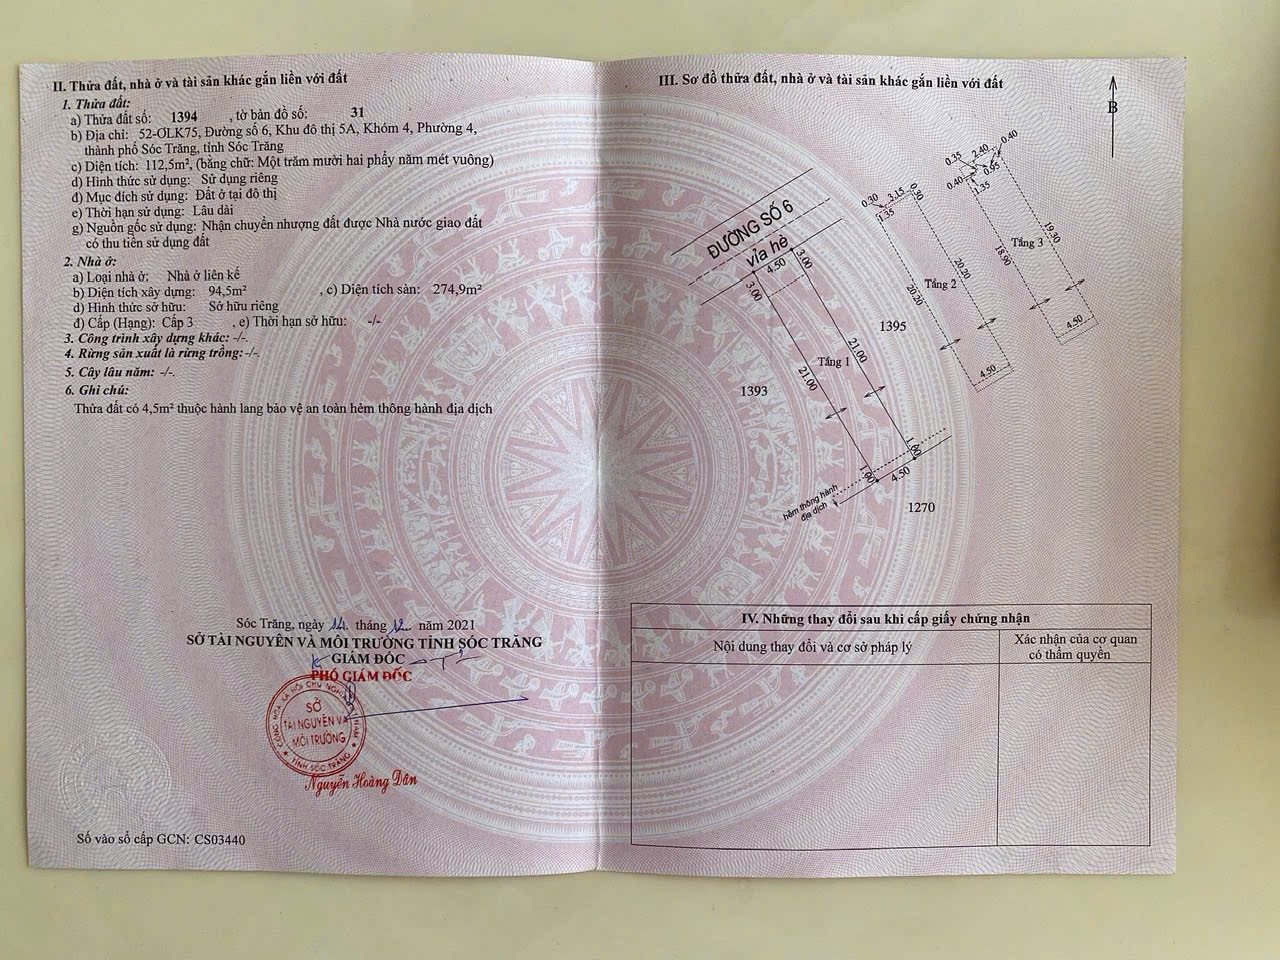 II. Thửa đất, nhà ở và tài sản khác gắn liền với đất
1. Thửa đất:
a) Thửa đất số: 1394 , tờ bản đồ số: 31
b) Địa chỉ: 52-OLK75, Đường số 6, Khu đô thị 5A, Khóm 4, Phường 4,
thành phố Sóc Trăng, tỉnh Sóc Trăng
c) Diện tích: 112,5m², (bằng chữ: Một trăm mười hai phẩy năm mét vuông)
d) Hình thức sử dụng: Sử dụng riêng
đ) Mục đích sử dụng: Đất ở tại đô thị
e) Thời hạn sử dụng: Lâu dài
g) Nguồn gốc sử dụng: Nhận chuyển nhượng đất được Nhà nước giao đất
có thu tiền sử dụng đất
2. Nhà ở:
a) Loại nhà ở: Nhà ở liên kế
b) Diện tích xây dựng: 94,5m² , c) Diện tích sàn: 274,9m²
d) Hình thức sở hữu: Sở hữu riêng
đ) Cấp (Hạng): Cấp 3 , e) Thời hạn sở hữu: -/-
3. Công trình xây dựng khác: -/-.
4. Rừng sản xuất là rừng trồng: -/-.
5. Cây lâu năm: -/-.
6. Ghi chú:
Thửa đất có 4,5m² thuộc hành lang bảo vệ an toàn hẻm thông hành địa dịch
Sóc Trăng, ngày 14 tháng 12 năm 2021
SỞ TÀI NGUYÊN VÀ MÔI TRƯỜNG TỈNH SÓC TRĂNG
GIÁM ĐỐC
PHÓ GIÁM ĐỐC
CỘNG HÒA XÃ HỘI CHỦ NGHĨA VIỆT NAM
SỞ
TÀI NGUYÊN VÀ
MÔI TRƯỜNG
TỈNH SÓC TRĂNG
Nguyễn Hoàng Dân
Số vào sổ cấp GCN: CS03440
III. Sơ đồ thửa đất, nhà ở và tài sản khác gắn liền với đất
B
ĐƯỜNG SỐ 6
vỉa hè
4.50
3.00
3.00
Tầng 1
21.00
21.00
1393
1395
1.00
1.00
4.50
hẻm thông hành
địa dịch
1270
0.30
3.15
0.30
1.35
Tầng 2
20.20
20.20
4.50
0.35
2.40
0.40
0.40
0.95
1.35
Tầng 3
19.30
18.90
4.50
IV. Những thay đổi sau khi cấp giấy chứng nhận
Nội dung thay đổi và cơ sở pháp lý
Xác nhận của cơ quan
có thẩm quyền